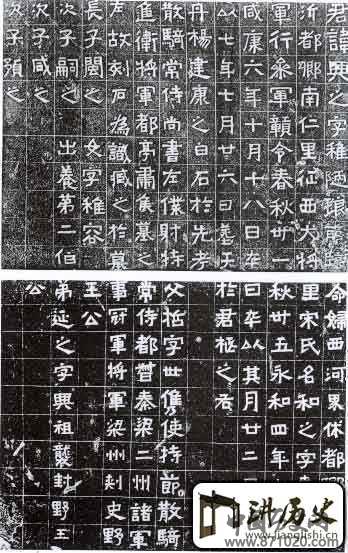 君諱興之字稚陋琅耶臨
沂都鄉南仁里征西大將
軍行參軍贛令春秋卅一
咸康六年十月十八日卒
以七年七月廿六日葬于
丹楊建康之白石於先考
散騎常侍尚書左僕射特
進衛將軍都亭肅侯墓之
左故刻石為識臧之於墓
長子閩之 女字稚容
次子嗣之 出養第二伯
次子咸之
次子預之
命婦西河界休都鄉
里宋氏名和之字
秋卅五永和四年
日卒以其月廿二
於君柩之右
父哲字世儁使持節散騎
常侍都督秦梁二州諸軍
事冠軍將軍梁州刾史野
王公
弟延之字興祖襲封野王
公
讲历史
www.jianglishi.cn
www.871020.com